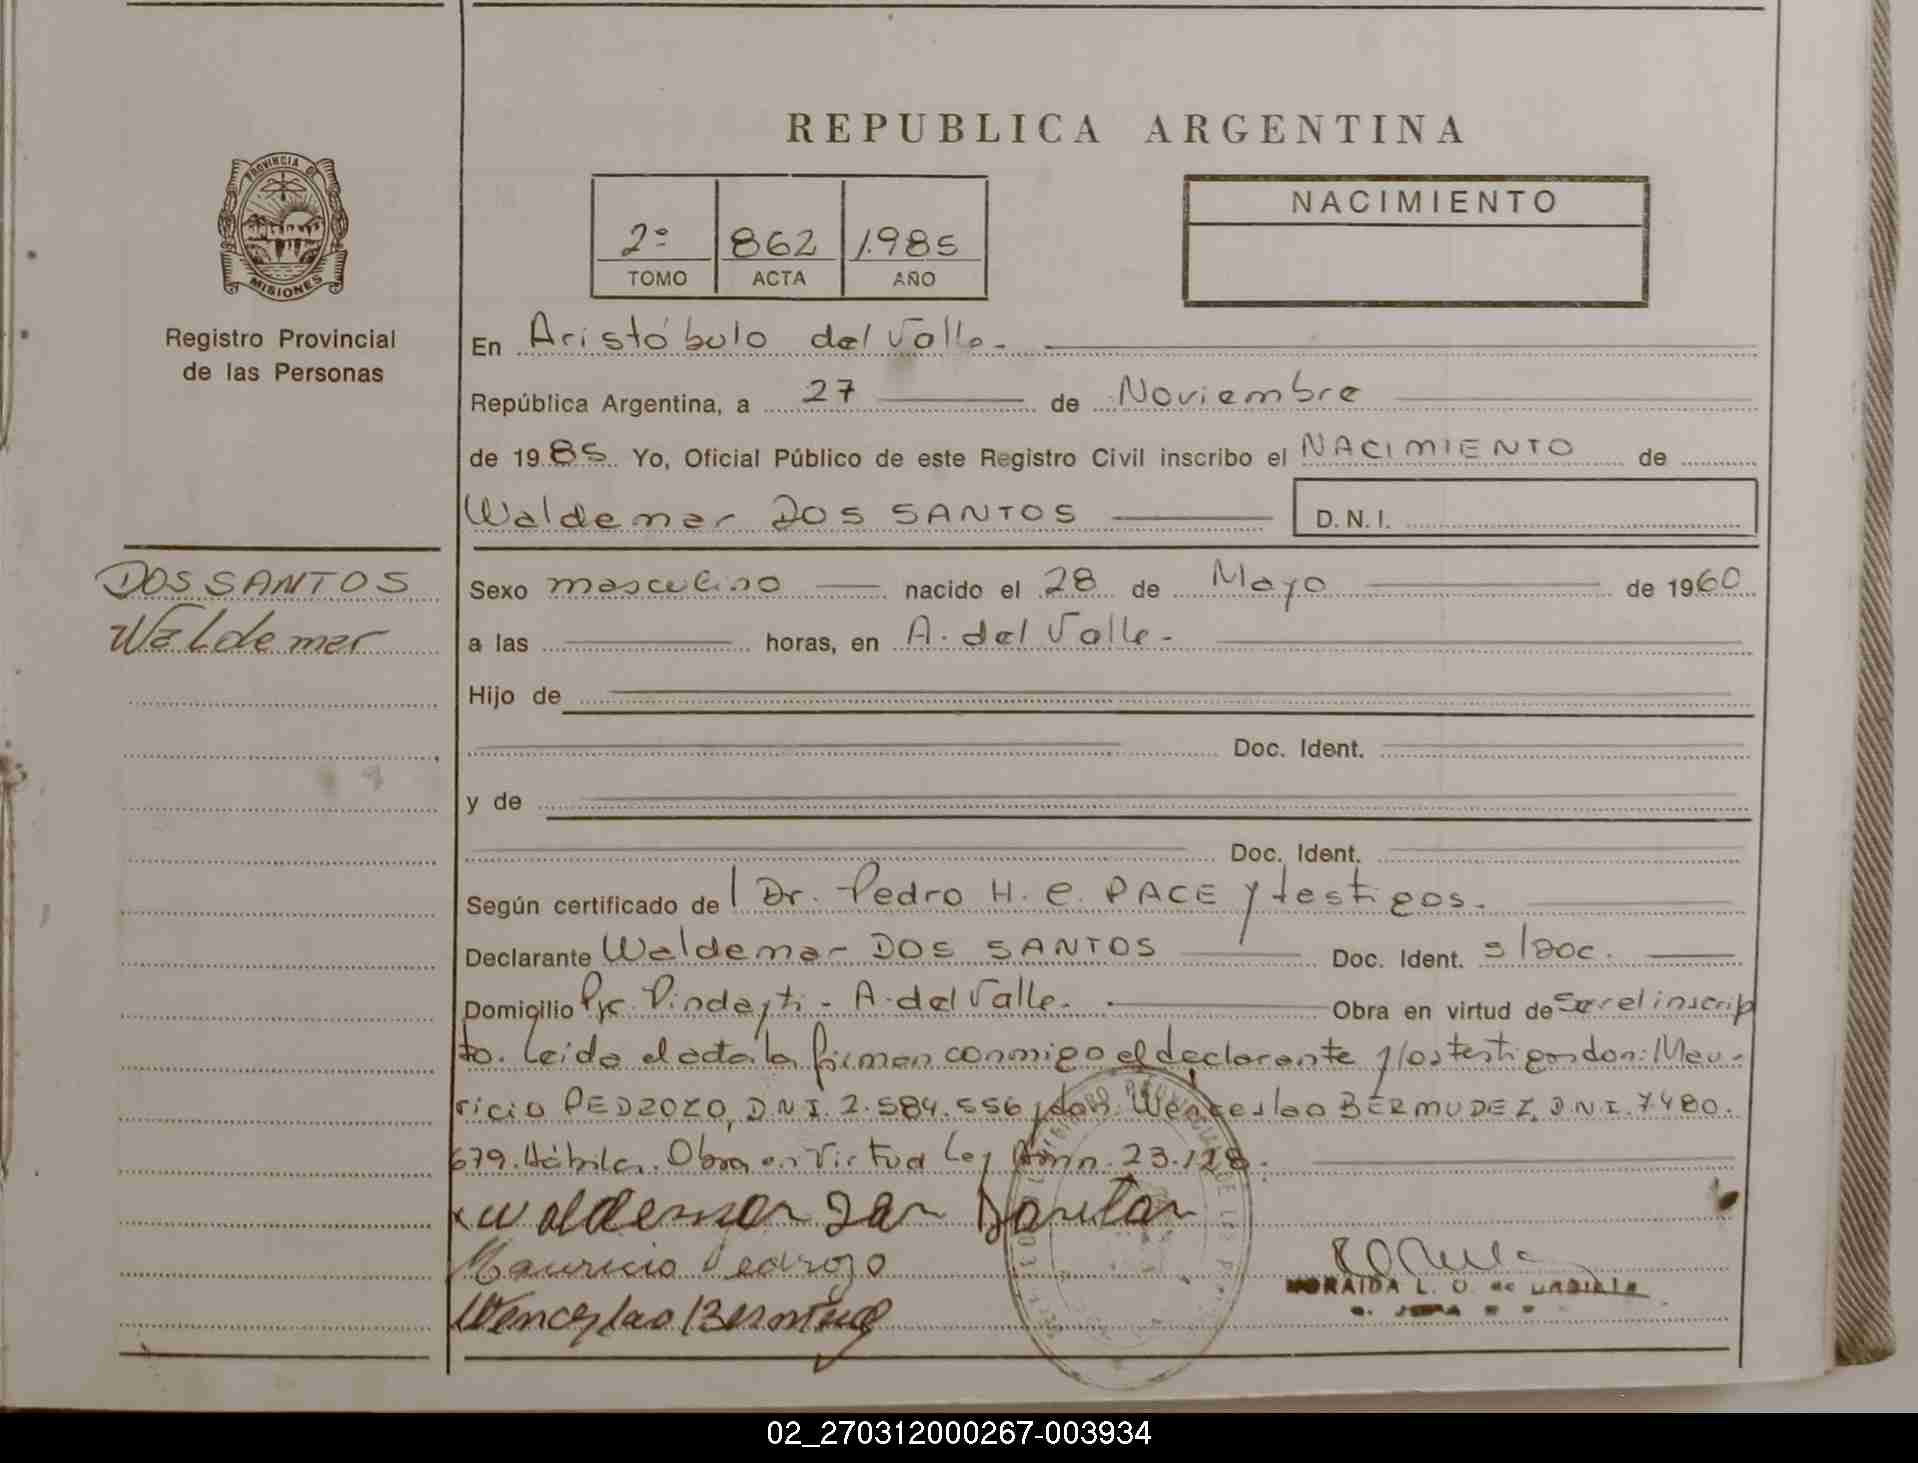 REPUBLICA ARGENTINA
PROVINCIA DE
MISIONES
Registro Provincial
de las Personas
2º 862 1.985
TOMO ACTA AÑO
NACIMIENTO
En Aristóbulo del Valle.-
República Argentina, a 27 de Noviembre
de 1985 Yo, Oficial Público de este Registro Civil inscribo el NACIMIENTO de
Waldemar DOS SANTOS
D.N.I.
DOS SANTOS
Waldemar
Sexo masculino nacido el 28 de Mayo de 1960
a las horas, en A. del Valle.-
Hijo de
Doc. Ident.
y de
Doc. Ident.
Según certificado de Dr. Pedro H. C. PACE y testigos.
Declarante Waldemar DOS SANTOS Doc. Ident. s/doc.
Domicilio Pje. Pindayti - A. del Valle. Obra en virtud de ser el inscrip
to. Leida el acta la firman conmigo el declarante y los testigos don: Mau-
ricio PEDROZO, D.N.I. 2.584.556 y don Wenceslao BERMUDEZ, D.N.I. 7480.
679. Hábiles. Obra en virtud Ley 23.128.
x Waldemar
Mauricio Pedrozo
Wenceslao
MORAIDA L. O. de
02_270312000267-003934